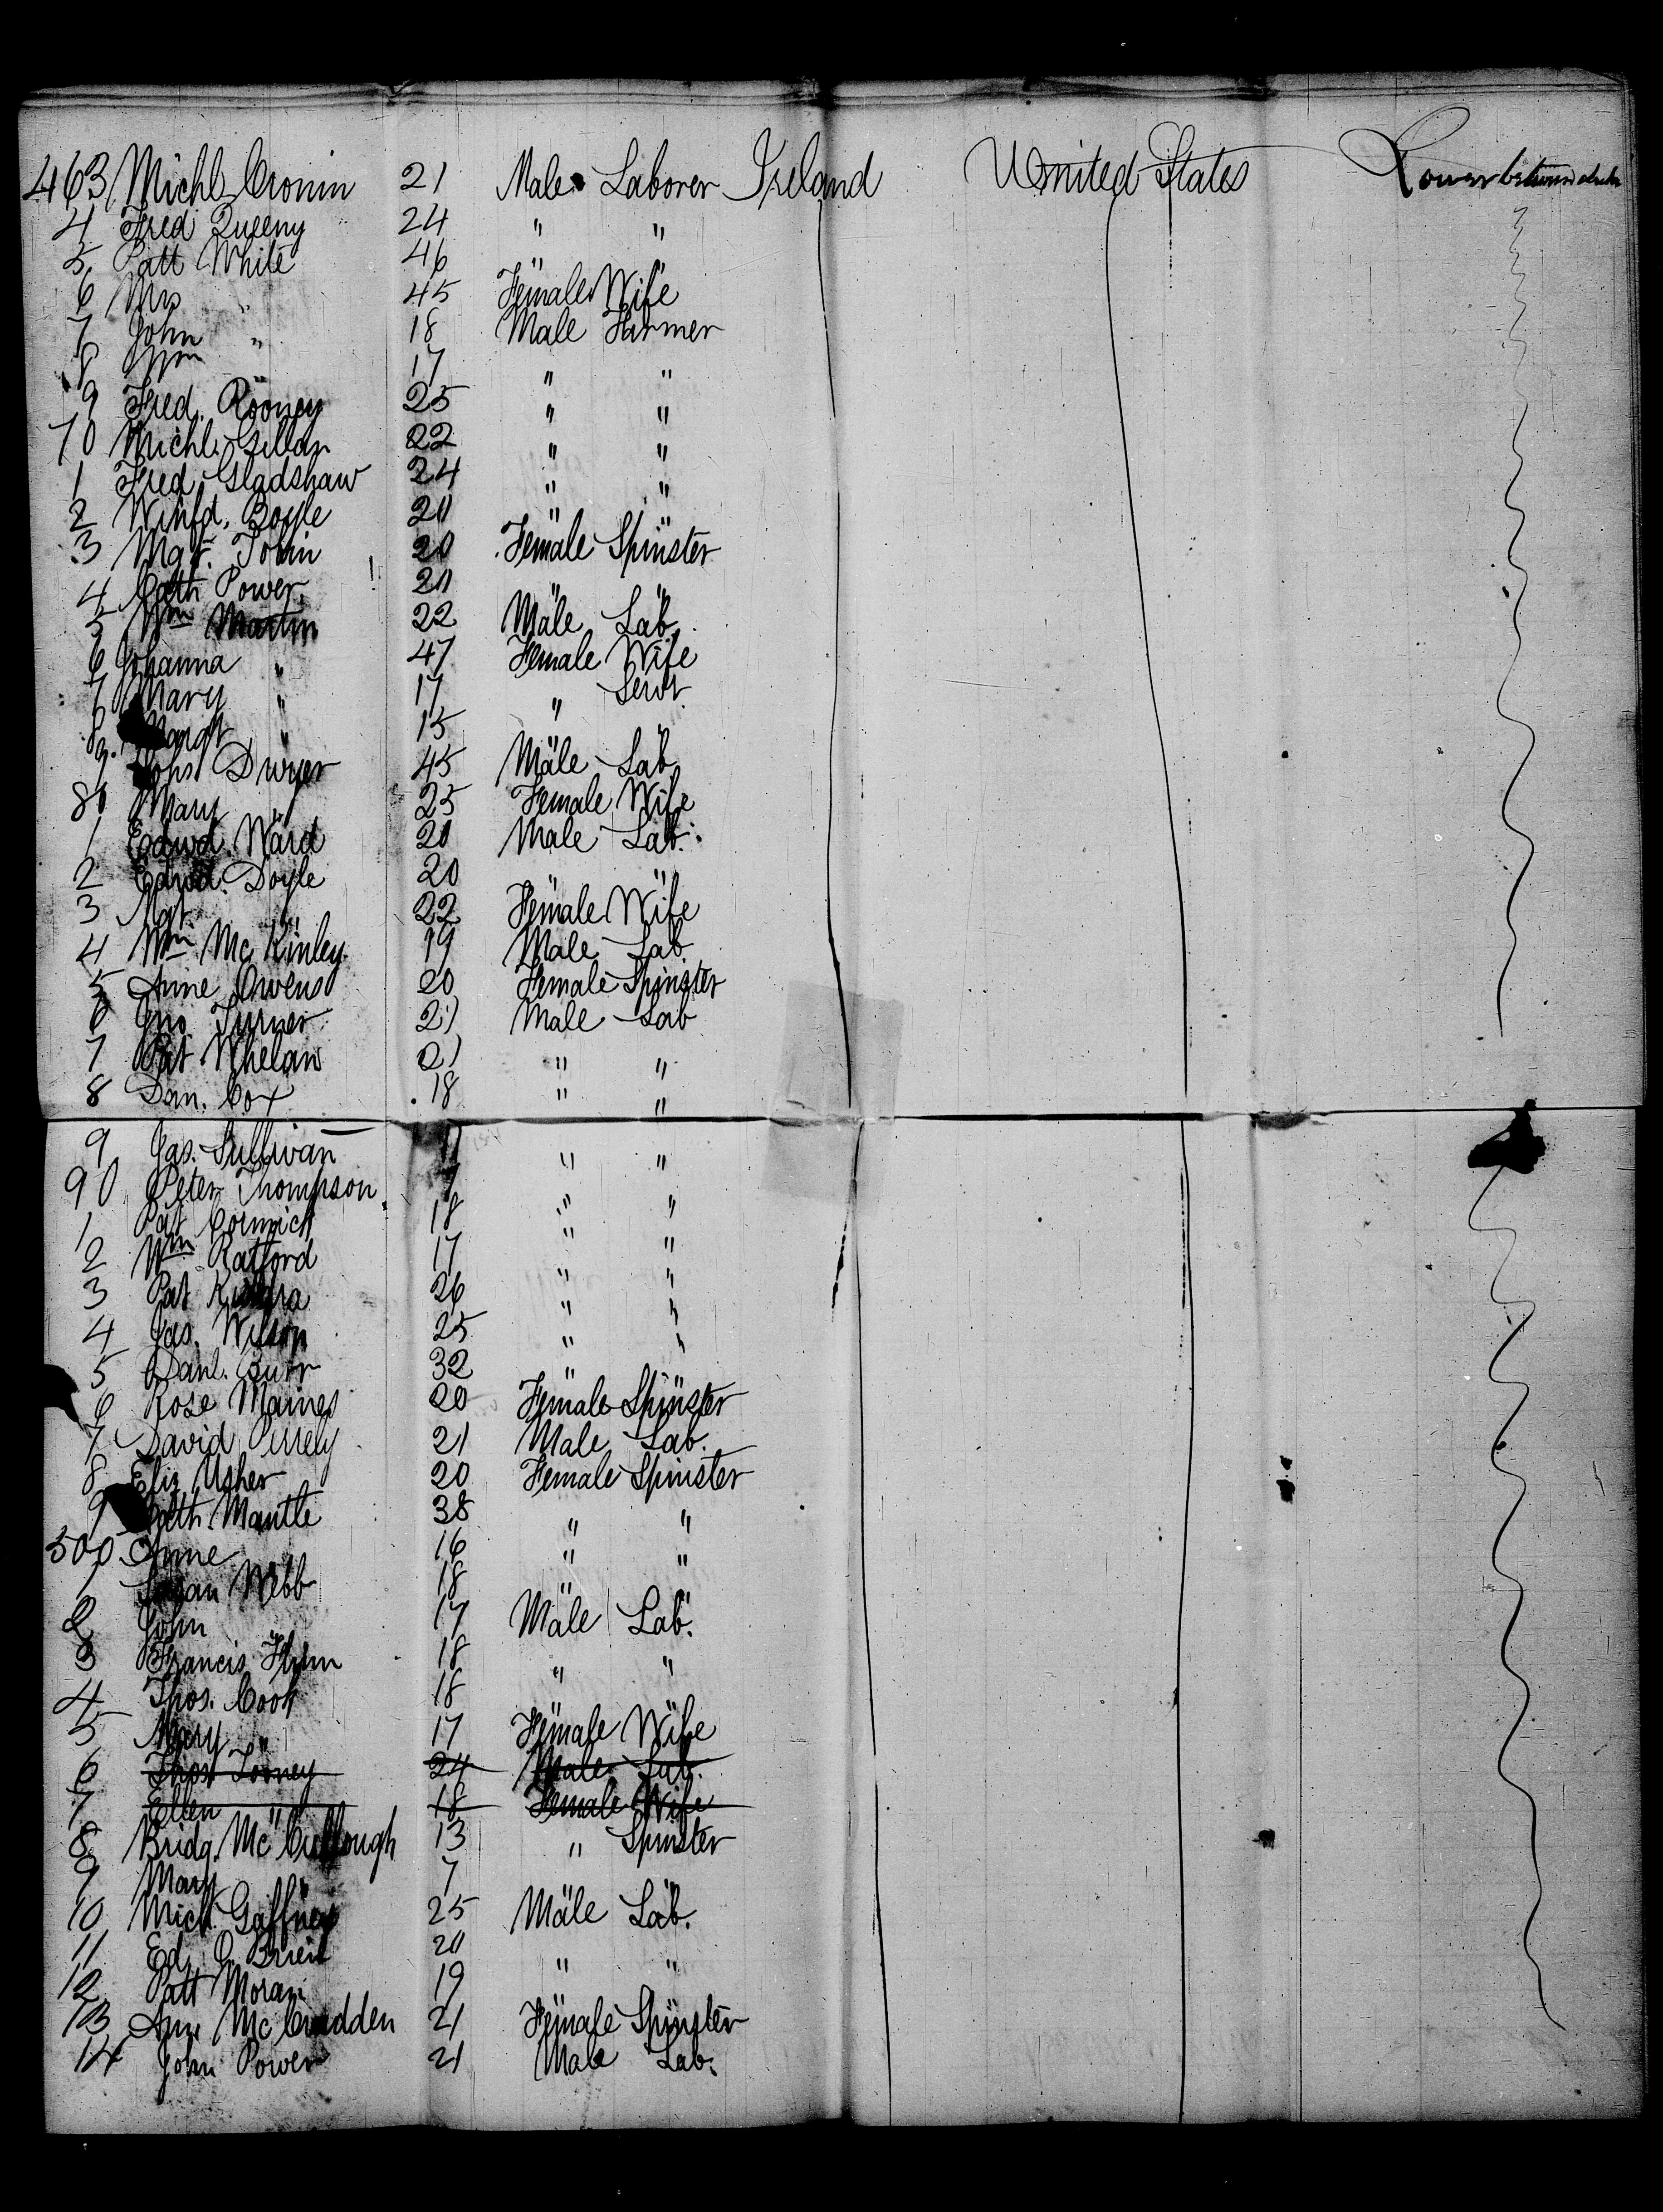 463 Michl. Cronin 21 Male Laborer Ireland United States Lower between decks
4 Fred Queeny 24 " "
5 Patt White 46 " "
6 Mrs " 45 Female Wife
7 John " 18 Male Farmer
8 Wm " 17 " "
9 Fred. Rooney 25 " "
70 Michl. Gillan 22 " "
1 Fred Gladshaw 24 " "
2 Winfd. Boyle 20 " "
3 Mgt. Tobin 20 Female Spinster
4 Cath Power 20 " "
5 Wm Martin 22 Male Lab
6 Johanna " 47 Female Wife
7 Mary " 17 " Servt.
8 Margt " 15 " "
9 Dwyer 45 Male Lab
80 Mary " 25 Female Wife
1 Edwd. Ward 20 Male Lab.
2 Edwd. Doyle 20 " "
3 Mgt " 22 Female Wife
4 Wm McKinley 19 Male Lab
5 Anne Owens 20 Female Spinster
6 Jno. Turner 21 Male Lab
7 Pat Whelan 21 " "
8 Dan. Cox 18 " "
9 Jas. Sullivan " "
90 Peter Thompson " "
1 Pat Cormick 18 " "
2 Wm Ratford 17 " "
3 Pat 26 " "
4 Jas. Wilson 25 " "
5 Danl. Burr 32 " "
6 Rose Maines 20 Female Spinster
7 David 21 Male Lab.
8 Eliz Usher 20 Female Spinster
9 Cath. Mantle 38 " "
500 Anne 16 " "
1 Susan Webb 18 " "
2 John 17 Male Lab.
3 Francis Flynn 18 " "
4 Thos. Cook 18 " "
5 Mary " 17 Female Wife
6 Thos Looney 24 Male Lab.
7 Ellen " 18 Female Wife
8 Bridg. McCullough 13 " Spinster
9 Mary " 7 " "
10 Mich. Gaffney 25 Male Lab.
11 Ed. O. Brien 20 " "
12 Patt Moran 19 " "
13 Ann McCudden 21 Female Spinster
14 John Power 21 Male Lab.